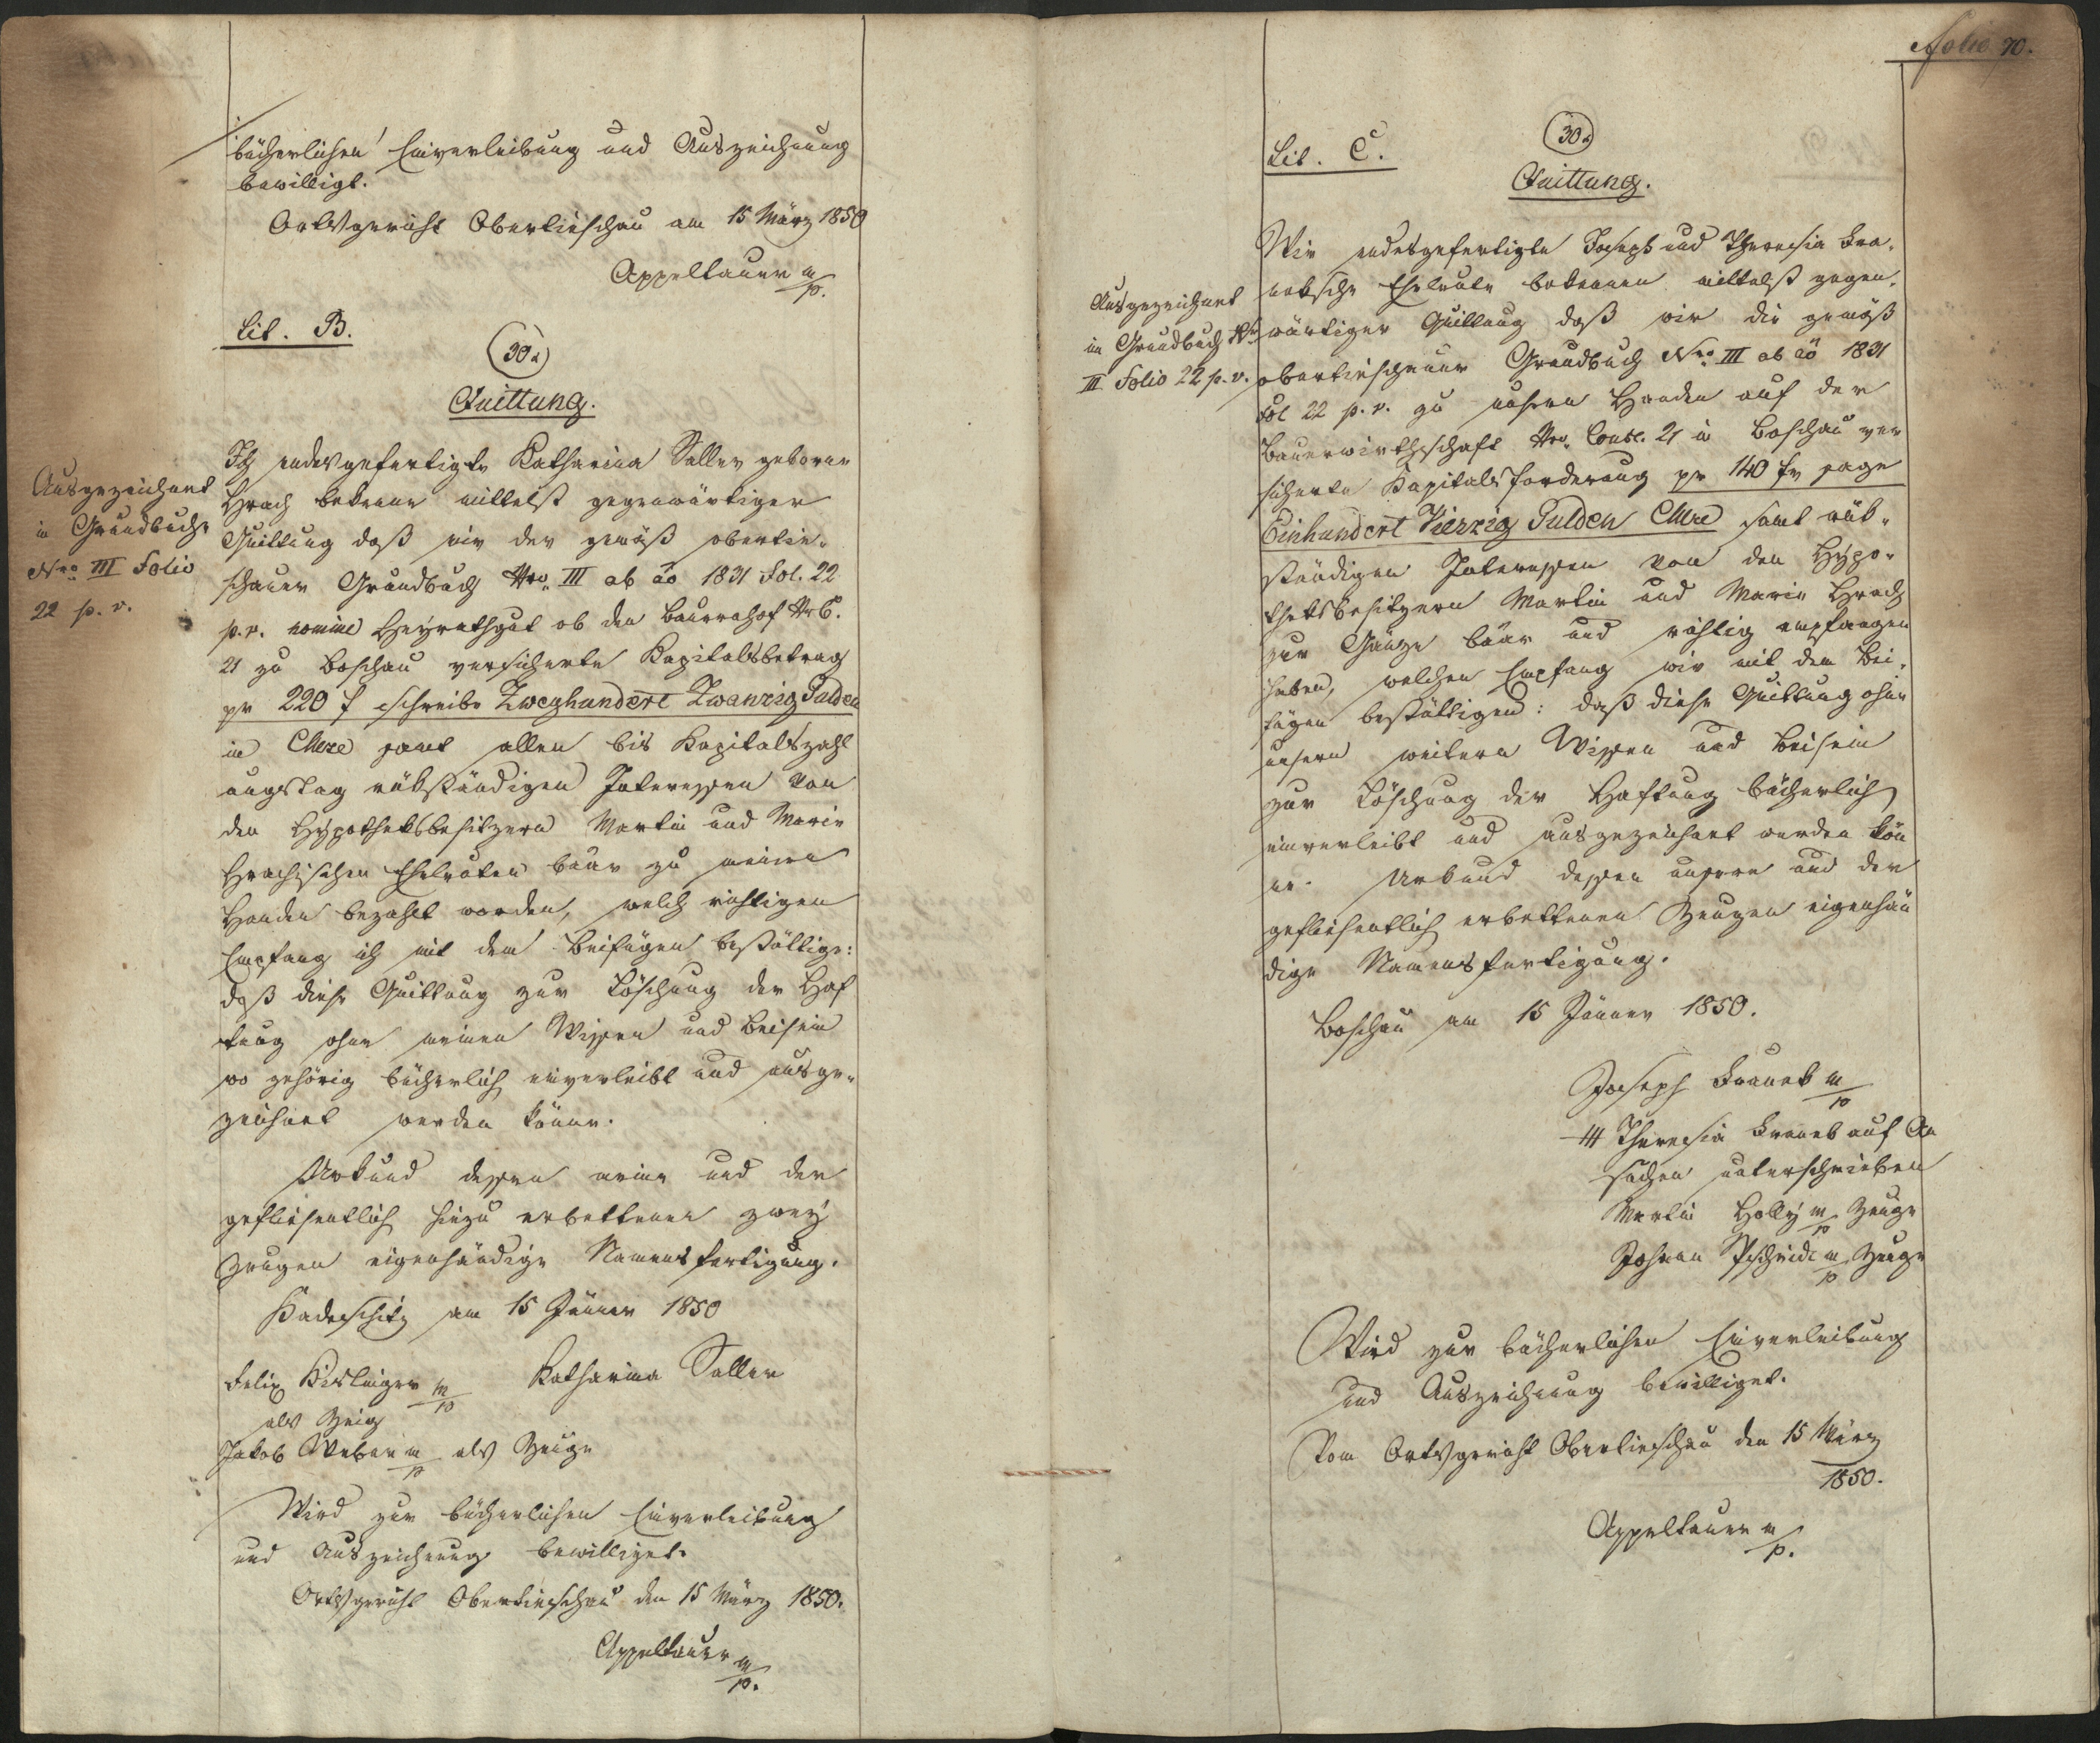 bücherlichen Einverleibung und Auszeichnung
bewilligt.
Ortsgericht Obertieschau am 15 März 1850
Appeltauer m/p.
Lit. B.
30x
Quittung.
Ausgezeichnet
in Grundbuche
Nro III Folio
22 p. v.
Ich endesgefertigte Katharina Saller geborne
Hrach bekenne mittelst gegenwärtiger
Quittung daß mir der gemäß obertie-
schauer Grundbuch Nro III ab ao 1831 Fol. 22
p. v. nomine Heyrathgut ob den Bauernhof NrC.
21 zu Boschau versicherte Kapitalsbetrag
pr 220 f schreibe Zweyhundert Zwanzig Gulden
in CMze samt allen bis Kapitalszahl
ungstag rükständigen Interessen von
den Hypotheksbesitzern Martin und Marie
Hrachischen Eheleuten baar zu meinen
Handen bezahlt worden, welch richtigen
Empfang ich mit dem Beifügen bestättige:
daß diese Quittung zur Löschung der Haf
tung ohne meinen Wissen und Beisein
wo gehörig bücherlich einverleibt und ausge-
zeichnet werden könne.
Urkund dessen meine und der
geflissentlich hiezu erbettenen zwey
Zeugen eigenhändige Namensfertigung.
Kadeschitz am 15 Jänner 1850
Felix Kislinger m/p Katharina Saller
als Zeig
Jakob Weber m/p als Zeuge
Wird zur bücherlichen Einverleibung
und Auszeichnung bewilliget.
Ortsgericht Obertieschau den 15 März 1850.
Appeltauer m/p.
Folio 70.
Lit. C.
30x
Quittung.
Ausgezeichnet
in Grundbuch Nro
III Folio 22 p. v.
Wir endesgefertigte Joseph und Theresia Kra-
netsche Eheleute bekennen mittelst gegen-
wärtiger Quittung daß wir die gemäß
obertieschauer Grundbuch Nro III ab ao 1831
Fol 22 p. v. zu unsern Handen auf der
Bauerwirthschaft Nro Consc. 21 in Boschau ver
sicherte Kapitalsforderung pr 140 f sage
Einhundert Vierzig Gulden CMze samt rük-
ständigen Interessen von den Hypo-
theksbesitzern Martin und Marie Hrach
zur Gänze baar und richtig empfangen
haben, welchen Empfang wir mit dem Bei-
fügen bestättigen: daß diese Quittung ohne
unsern weitern Wissen und Beisein
zur Löschung der Haftung bücherlich
einverleibt und ausgezeichnet werden kön
ne. Urkund dessen unsere und der
geflissentlich erbettenen Zeugen eigenhän
dige Namensfertigung.
Boschau am 15 Jänner 1850.
Joseph Kranet m/p
+++ Theresia Kranet auf An
suchen unterschrieben
Martin Holly m/p Zeuge
Johann m/p Zeuge
Wird zur bücherlichen Einverleibung
und Auszeichnung bewilliget.
Vom Ortsgericht Obertieschau den 15 März
1850.
Appeltauer m/p.